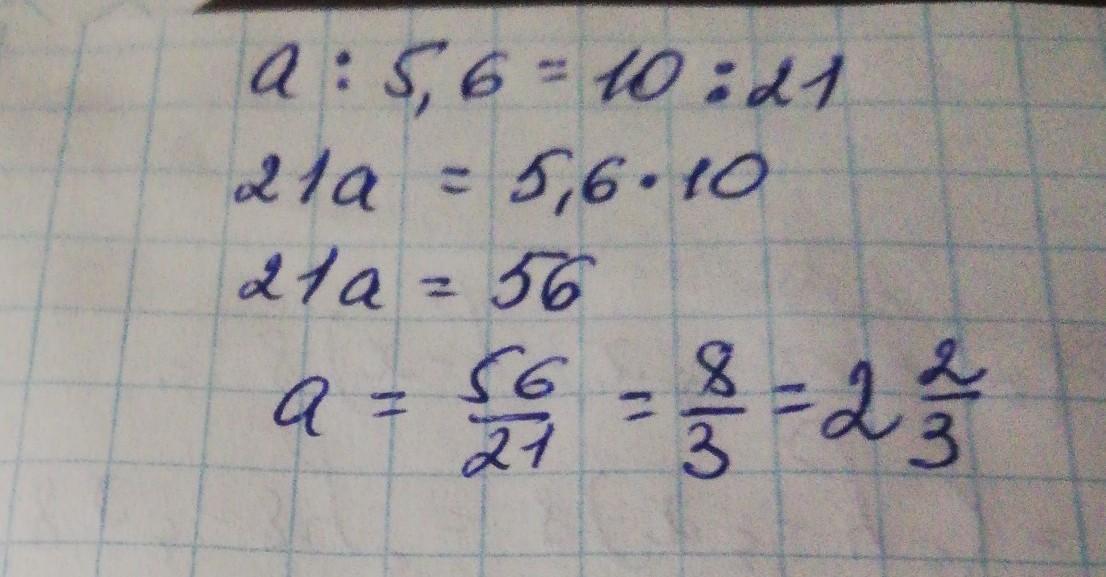 a : 5,6 = 10 : 21
21a = 5,6 · 10
21a = 56
a = 56/21 = 8/3 = 2 2/3